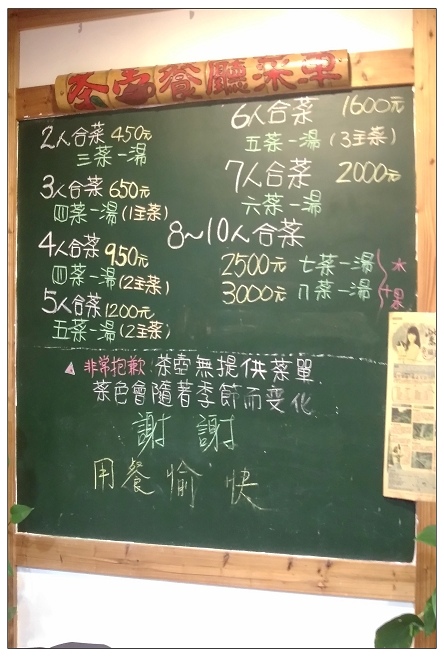 茶壺餐廳菜單
2人合菜 450元
三菜一湯
3人合菜 650元
四菜一湯(1主菜)
4人合菜 950元
四菜一湯(2主菜)
5人合菜 1200元
五菜一湯(2主菜)
6人合菜 1600元
五菜一湯(3主菜)
7人合菜 2000元
六菜一湯
8~10人合菜
2500元 七菜一湯
3000元 八菜一湯
+水果
▲ 非常抱歉 茶壺無提供菜單
菜色會隨著季節而变化
謝謝
用餐愉快